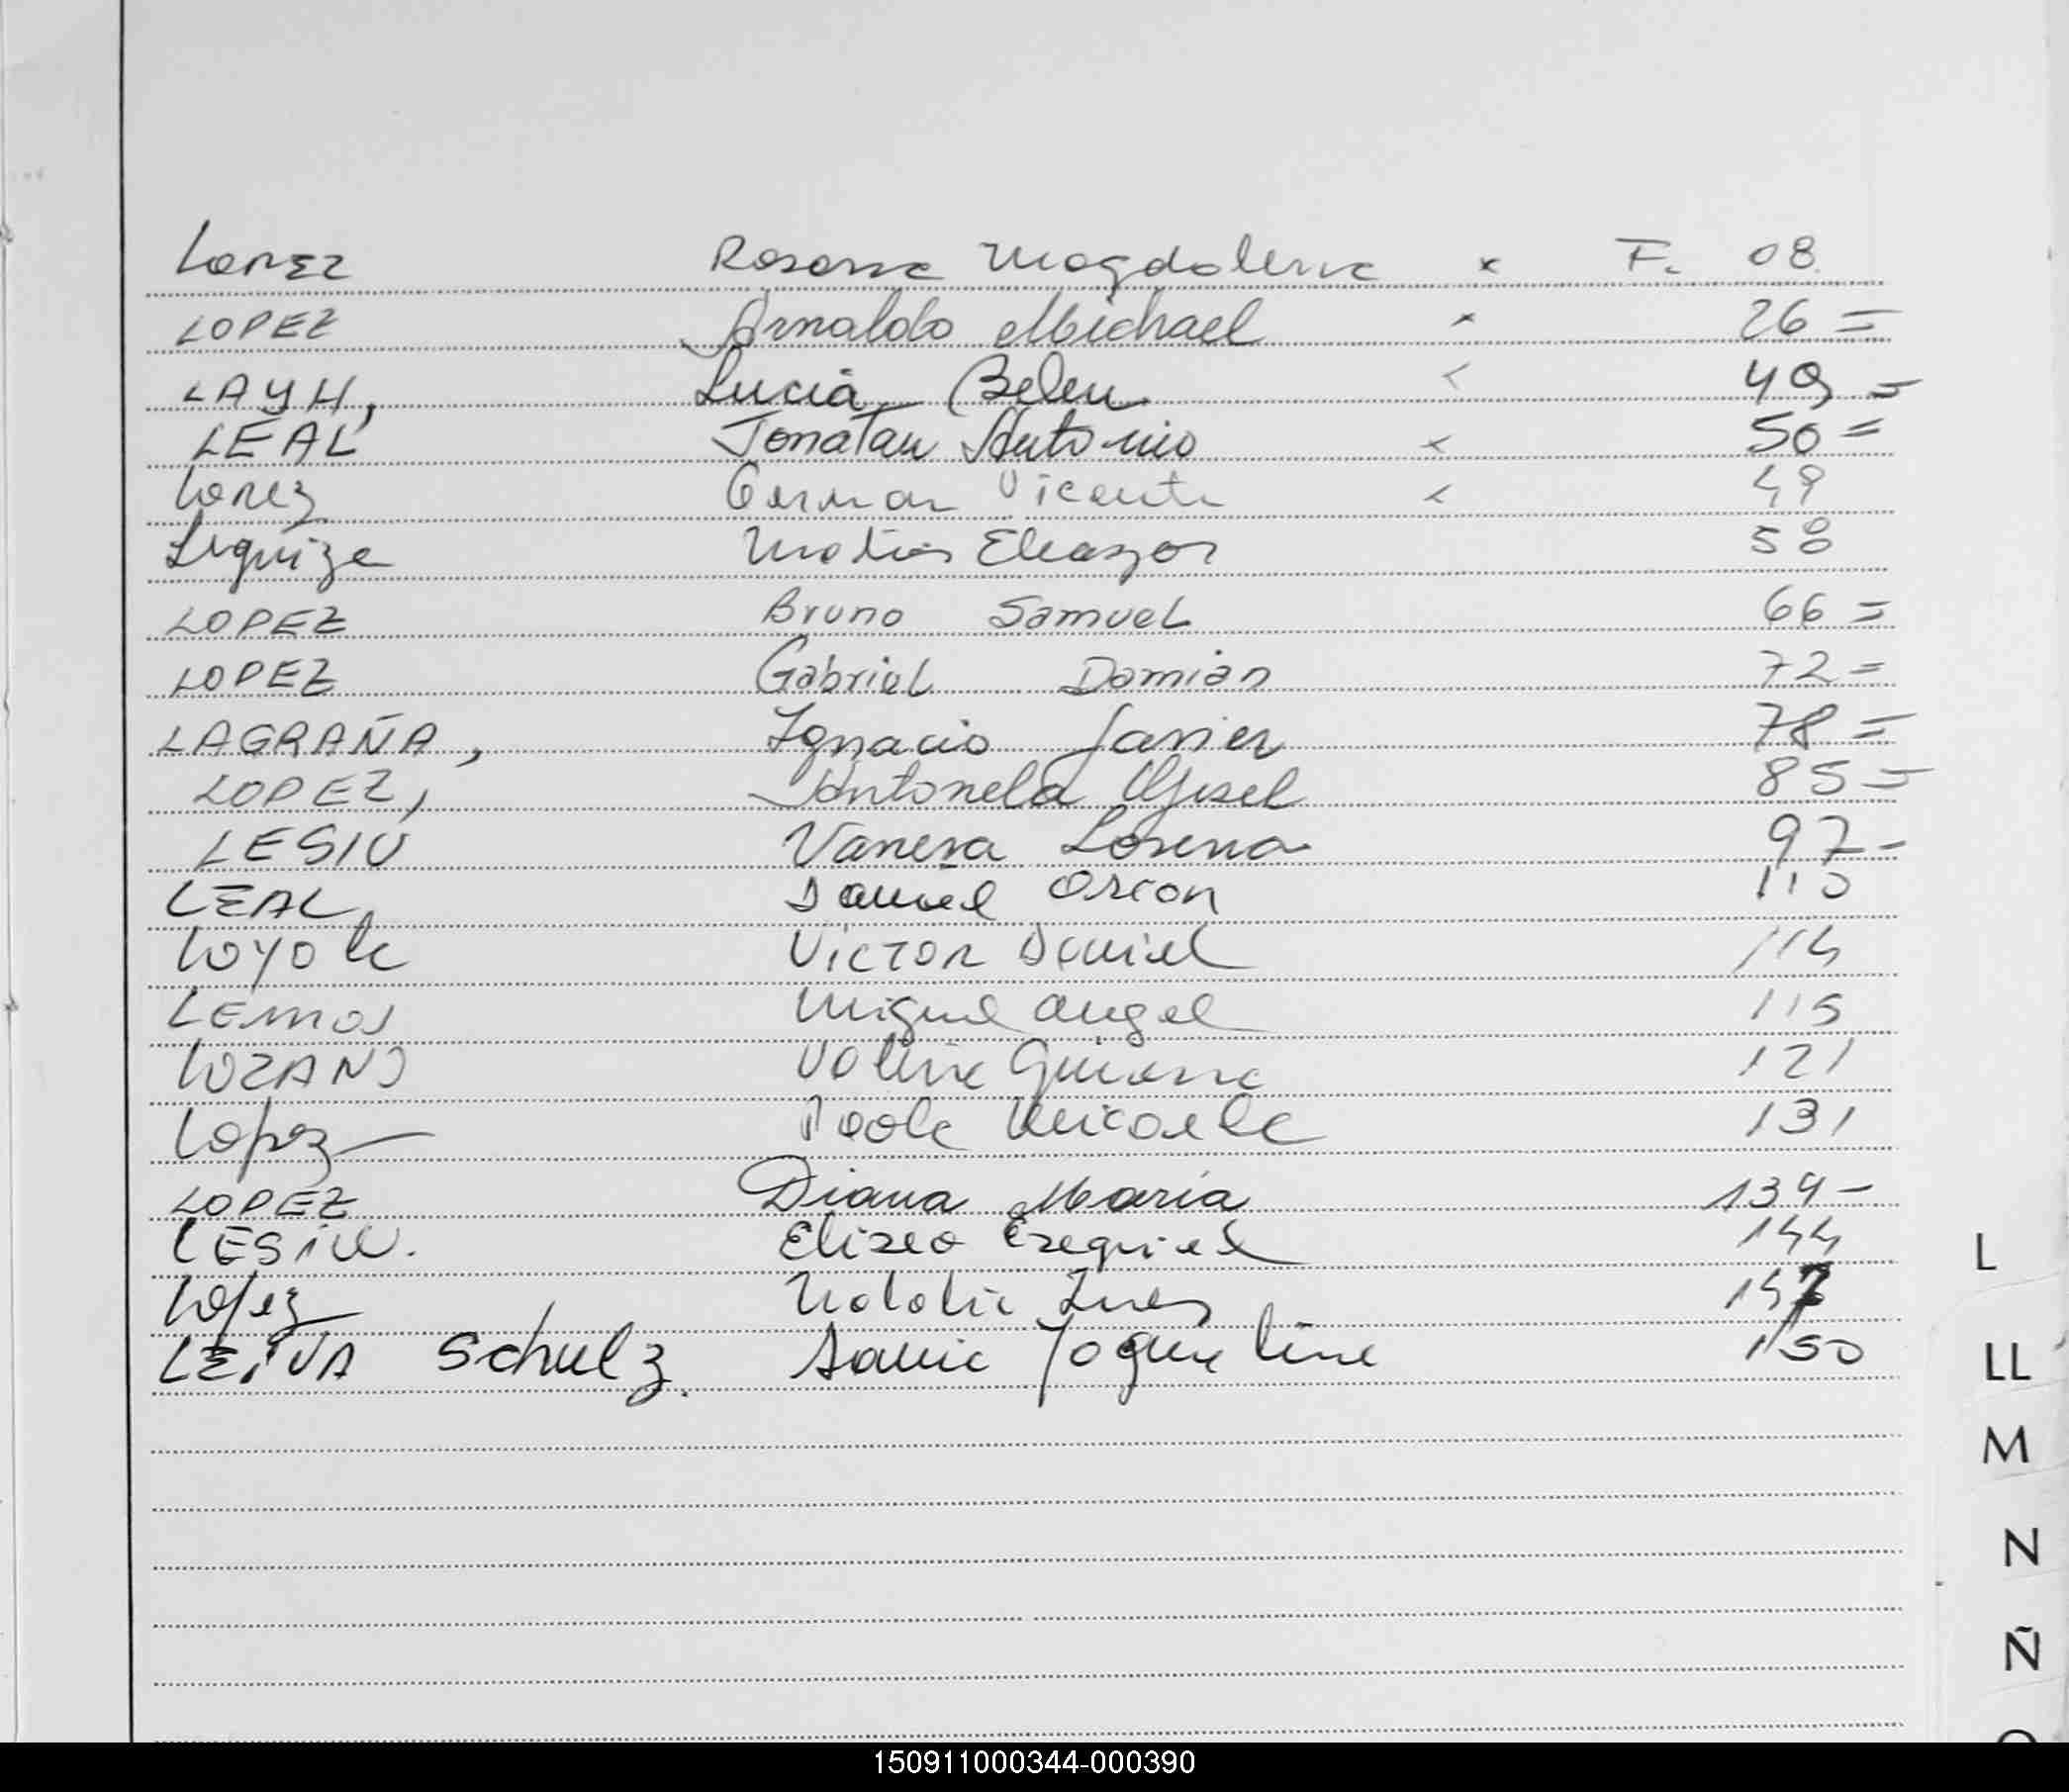 Lopez Rosana Magdalena x F. 08
LOPEZ Arnaldo Michael x 26 =
LAYH, Lucia Belen x 49 =
LEAL Jonatan Antonio x 50 =
Lopez German Vicente x 49
Leguiza Matias Eleazar 58
LOPEZ Bruno Samuel 66 =
LOPEZ Gabriel Damian 72 =
LAGRAÑA, Ignacio Javier 78 =
LOPEZ, Antonela Gisel 85 =
LESIU Vanesa Lorena 97 -
LEAL Daniel Orion 110
Loyola Victor Daniel 114
LEMOS Miguel Angel 115
LOZANO 121
Lopez Paola Micaela 131
LOPEZ Diana Maria 139 -
LESIW. Eliseo Ezequiel 144
Lopez Natalia Ines 147
LEIVA Schulz. Yaqueline 150
L
LL
M
N
Ñ
150911000344-000390